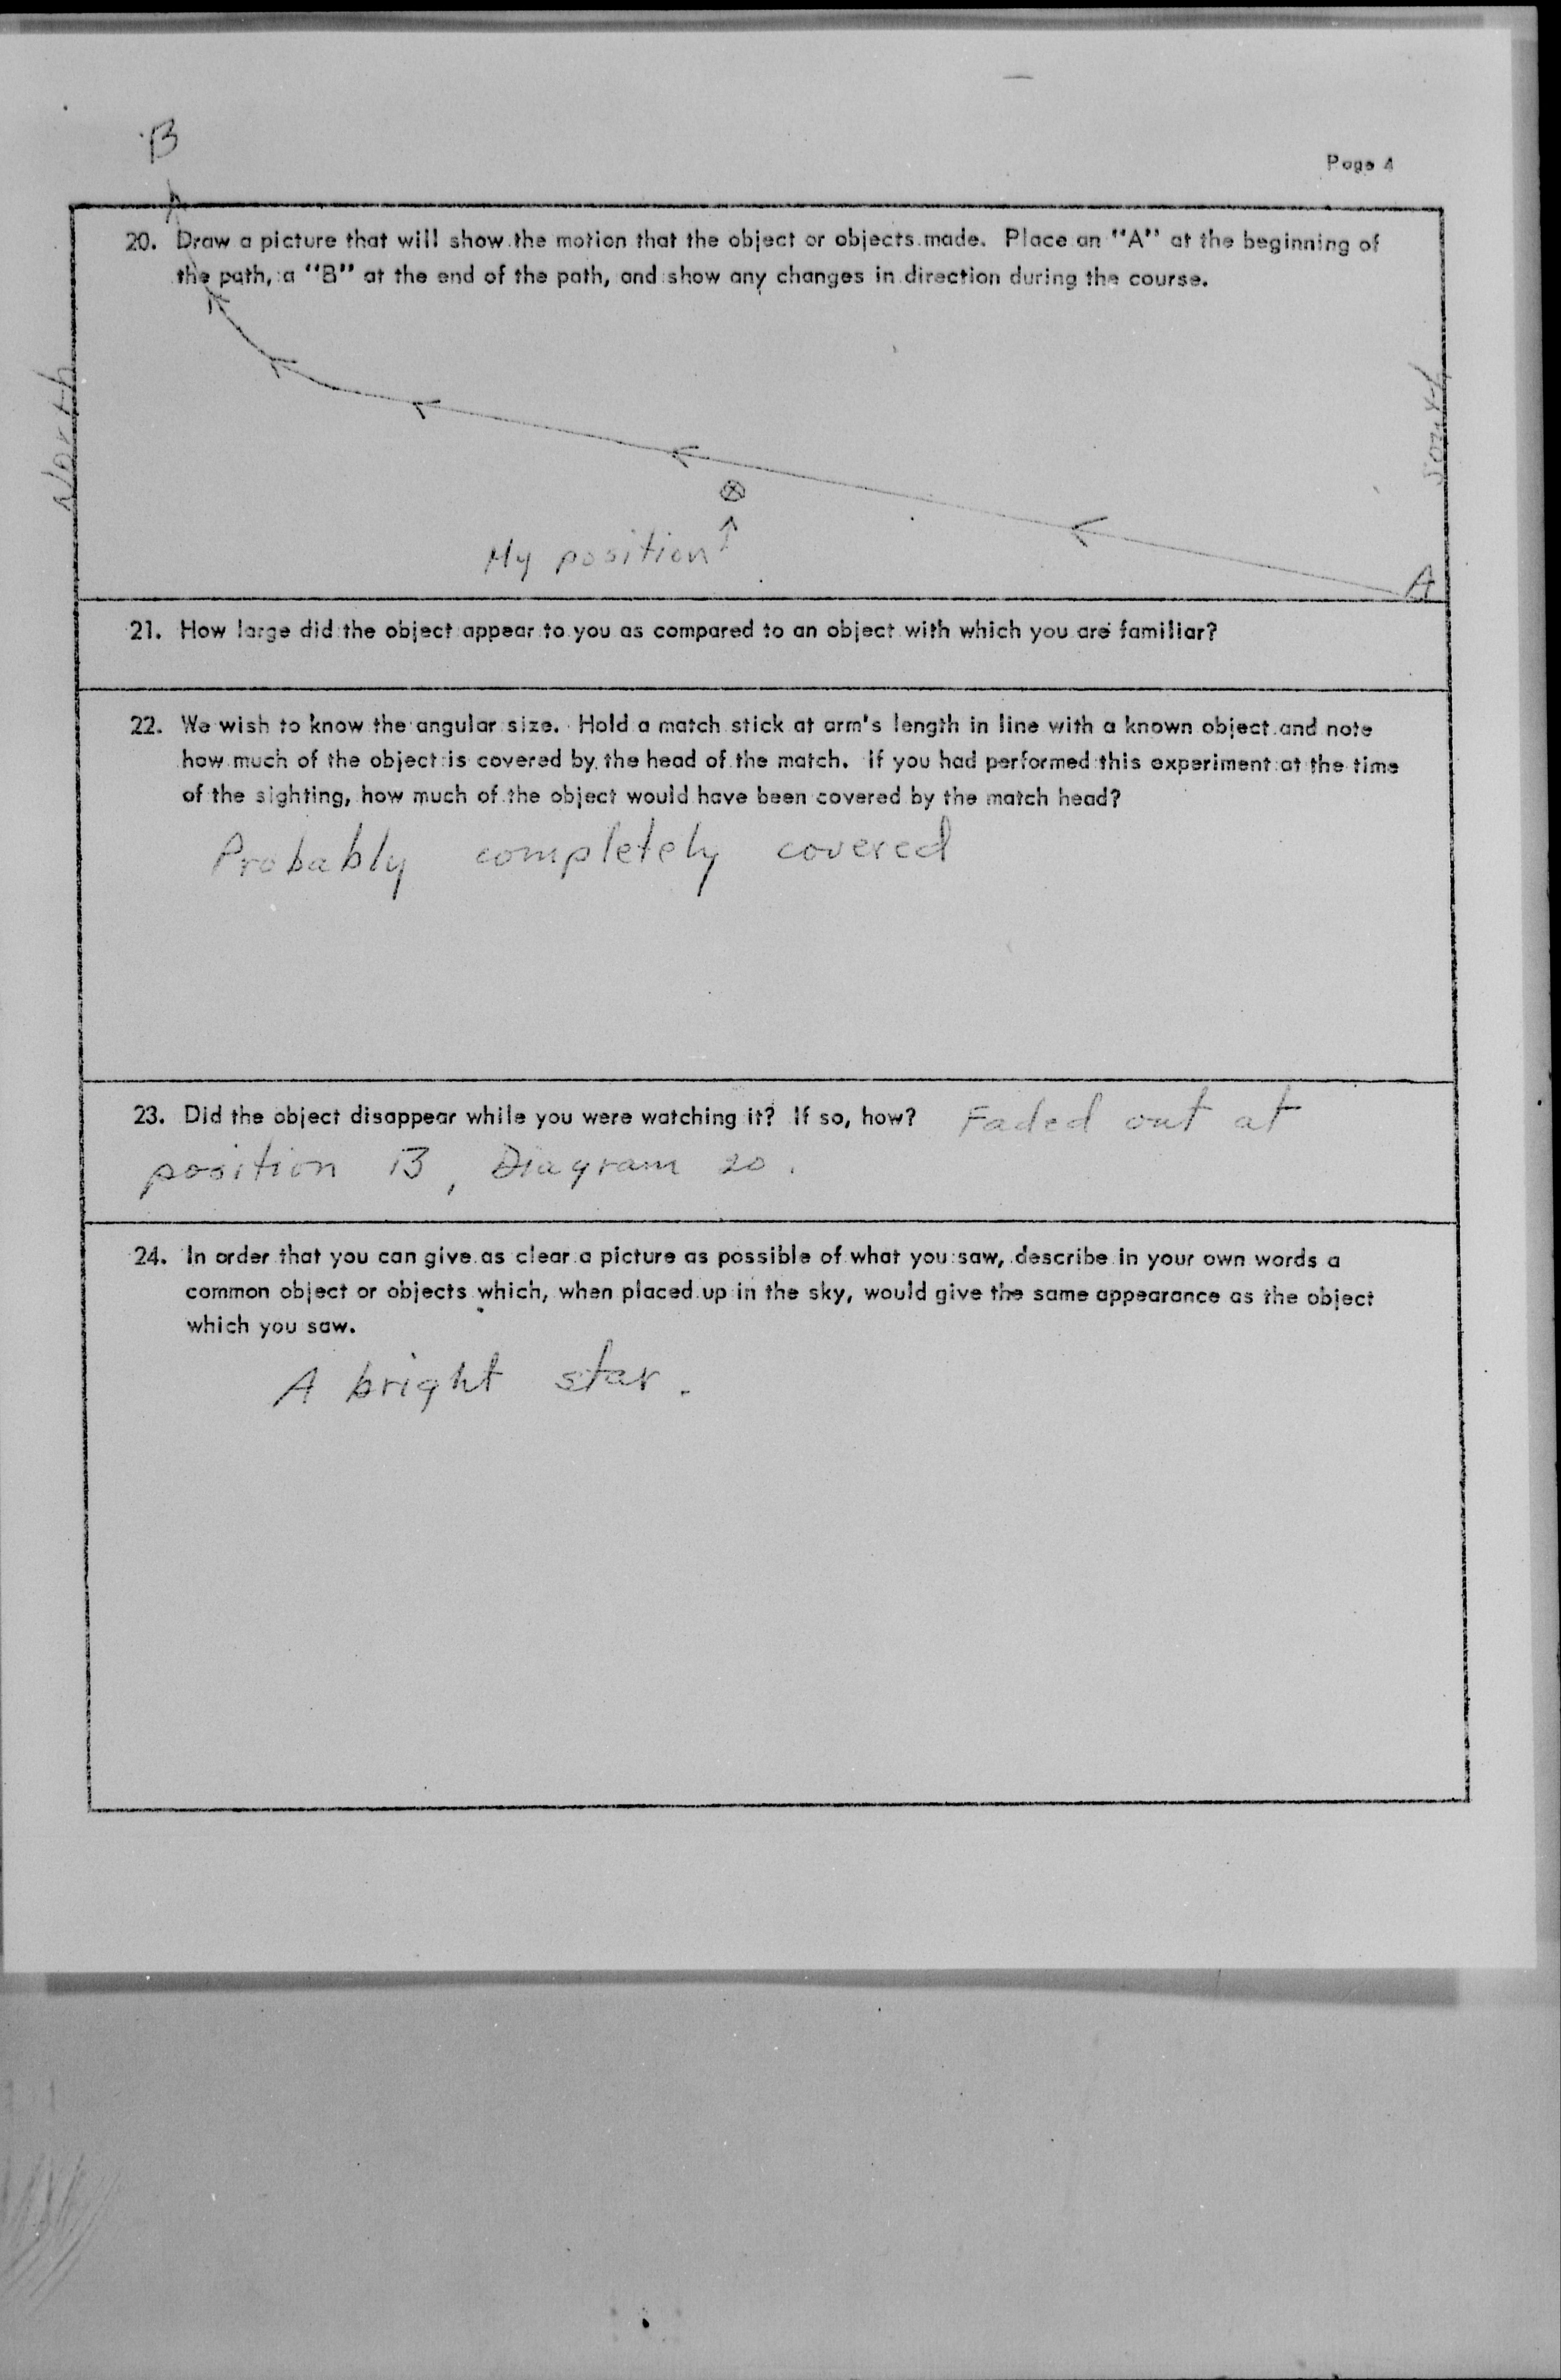 B
Page 4
20. Draw a picture that will show the motion that the object or objects made. Place an "A" at the beginning of
the path, a "B" at the end of the path, and show any changes in direction during the course.
North
South
My position
A
21. How large did the object appear to you as compared to an object with which you are familiar?
22. We wish to know the angular size. Hold a match stick at arm's length in line with a known object and note
how much of the object is covered by the head of the match. If you had performed this experiment at the time
of the sighting, how much of the object would have been covered by the match head?
Probably completely covered
23. Did the object disappear while you were watching it? If so, how? Faded out at
position B, Diagram 20.
24. In order that you can give as clear a picture as possible of what you saw, describe in your own words a
common object or objects which, when placed up in the sky, would give the same appearance as the object
which you saw.
A bright star.